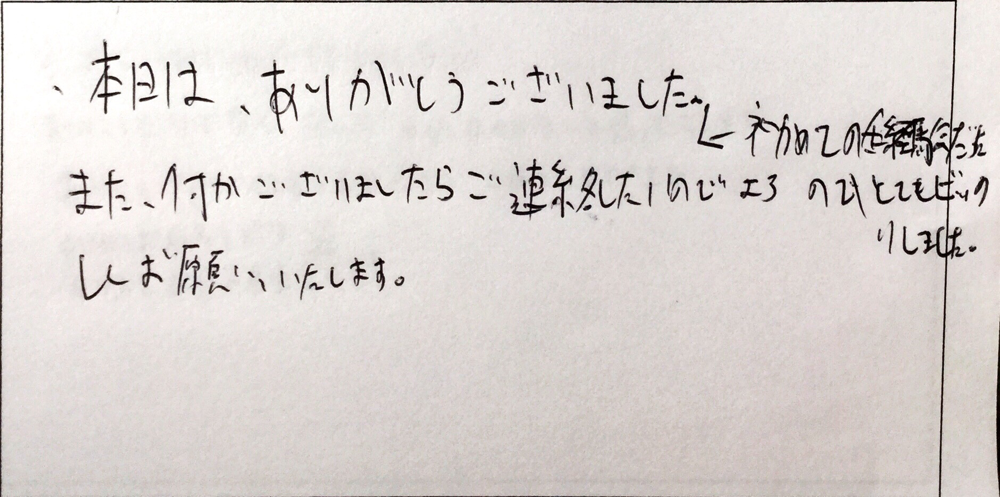 、本日は、ありがとうございました。
また、何かございましたらご連絡したいのでよろ
しくお願い、いたします。
←初めての だった
のでとてもビック
リしました。